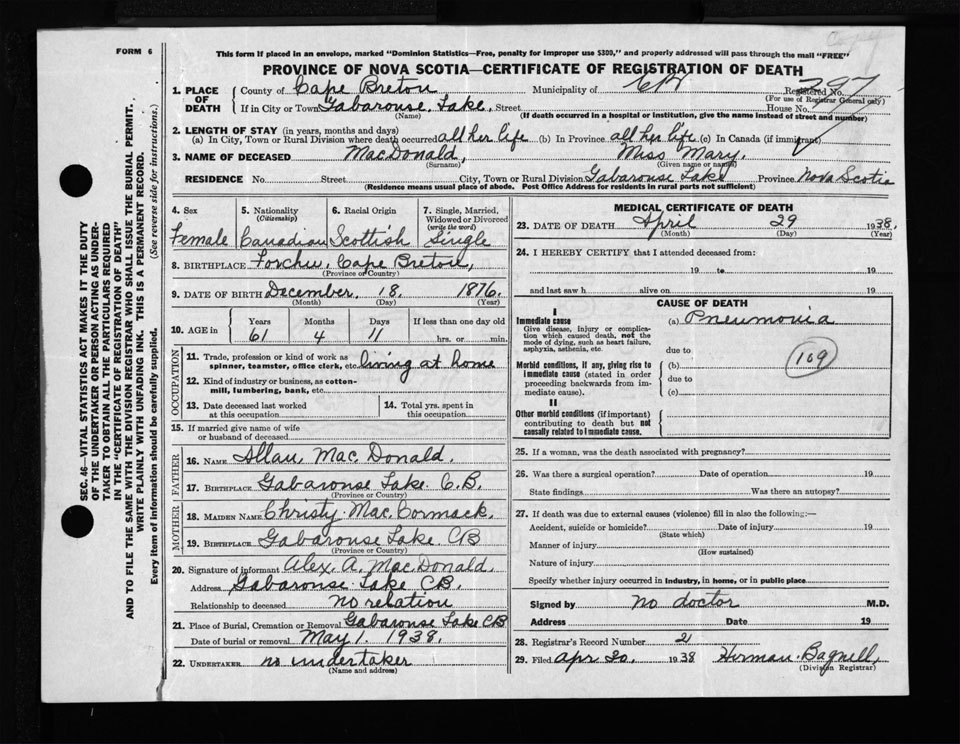 FORM 6
This form if placed in an envelope, marked "Dominion Statistics—Free, penalty for improper use $300," and properly addressed will pass through the mail "FREE"
PROVINCE OF NOVA SCOTIA—CERTIFICATE OF REGISTRATION OF DEATH
1. PLACE OF DEATH
County of Cape Breton Municipality of CB Registered No. 797
(For use of Registrar General only)
If in City or Town Gabarouse Lake. Street House No.
(Name) (If death occurred in a hospital or institution, give the name instead of street and number)
2. LENGTH OF STAY (in years, months and days)
(a) In City, Town or Rural Division where death occurred all her life (b) In Province all her life (c) In Canada (if immigrant)
3. NAME OF DECEASED MacDonald, Miss Mary.
(Surname) (Given name or names)
RESIDENCE No. Street City, Town or Rural Division Gabarouse Lake Province Nova Scotia
(Residence means usual place of abode. Post Office Address for residents in rural parts not sufficient)
SEC. 46—VITAL STATISTICS ACT MAKES IT THE DUTY
OF THE UNDERTAKER OR PERSON ACTING AS UNDER-
TAKER TO OBTAIN ALL THE PARTICULARS REQUIRED
IN THE "CERTIFICATE OF REGISTRATION OF DEATH"
AND TO FILE THE SAME WITH THE DIVISION REGISTRAR WHO SHALL ISSUE THE BURIAL PERMIT.
WRITE PLAINLY WITH UNFADING INK. THIS IS A PERMANENT RECORD.
Every item of information should be carefully supplied. (See reverse side for instructions.)
4. Sex
Female
5. Nationality
(Citizenship)
Canadian
6. Racial Origin
Scottish
7. Single, Married,
Widowed or Divorced
(write the word)
Single
8. BIRTHPLACE Forchu, Cape Breton,
(Province or Country)
9. DATE OF BIRTH December. 18. 1876.
(Month) (Day) (Year)
10. AGE in
Years Months Days If less than one day old
61 4 11 hrs. or min.
OCCUPATION
11. Trade, profession or kind of work as
spinner, teamster, office clerk, etc. living at home
12. Kind of industry or business, as cotton-
mill, lumbering, bank, etc.
13. Date deceased last worked
at this occupation
14. Total yrs. spent in
this occupation
15. If married give name of wife
or husband of deceased
FATHER
16. NAME Allan, Mac Donald.
17. BIRTHPLACE Gabarouse Lake. C.B.
(Province or Country)
MOTHER
18. MAIDEN NAME Christy. Mac. Cormack.
19. BIRTHPLACE Gabarouse Lake CB
(Province or Country)
20. Signature of informant Alex. A. MacDonald.
Address Gabarouse Lake CB.
Relationship to deceased no relation
21. Place of Burial, Cremation or Removal Gabarouse Lake CB
Date of burial or removal May 1. 1938.
22. UNDERTAKER no undertaker
(Name and address)
MEDICAL CERTIFICATE OF DEATH
23. DATE OF DEATH April 29 1938.
(Month) (Day) (Year)
24. I HEREBY CERTIFY that I attended deceased from:
19 to 19
and last saw h alive on 19
CAUSE OF DEATH
I
Immediate cause (a) Pneumonia
Give disease, injury or complica-
tion which caused death, not the
mode of dying, such as heart failure,
asphyxia, asthenia, etc.
due to
Morbid conditions, if any, giving rise to
immediate cause (stated in order
proceeding backwards from im-
mediate cause).
(b) 109
due to
(c)
II
Other morbid conditions (if important)
contributing to death but not
causally related to immediate cause.
25. If a woman, was the death associated with pregnancy?
26. Was there a surgical operation? Date of operation 19
State findings Was there an autopsy?
27. If death was due to external causes (violence) fill in also the following:—
Accident, suicide or homicide? Date of injury 19
(State which)
Manner of injury
(How sustained)
Nature of injury
Specify whether injury occurred in industry, in home, or in public place
Signed by no doctor M.D.
Address Date 19
28. Registrar's Record Number 21
29. Filed Apr 30. 1938 Herman. Bagnell,
(Division Registrar)